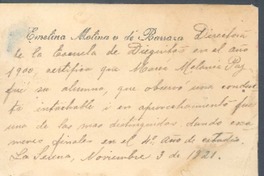 Emelina Molina v. de Bravara Directora
de la Escuela de Dieguitas en el año
1900, certifico que Marie Melanie Paz
fué su alumna, que observó una conduc
ta intachable i en aprovechamiento fué
una de las mas distinguidas dando exá
menes finales en el 4º año de estudio.
La Selena, Noviembre 3 de 1921.